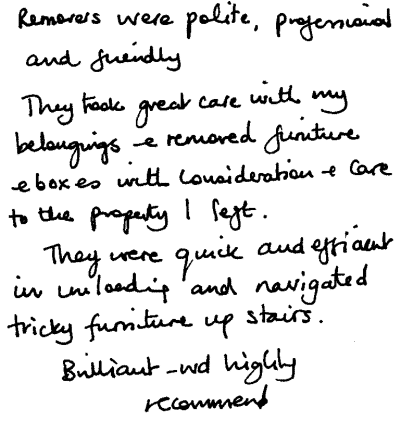 Removers were polite, professional
and friendly
They took great care with my
belongings & removed furniture
& boxes with consideration & care
to the property I left.
They were quick and efficient
in unloading and navigated
tricky furniture up stairs.
Brilliant - wd highly
recommend